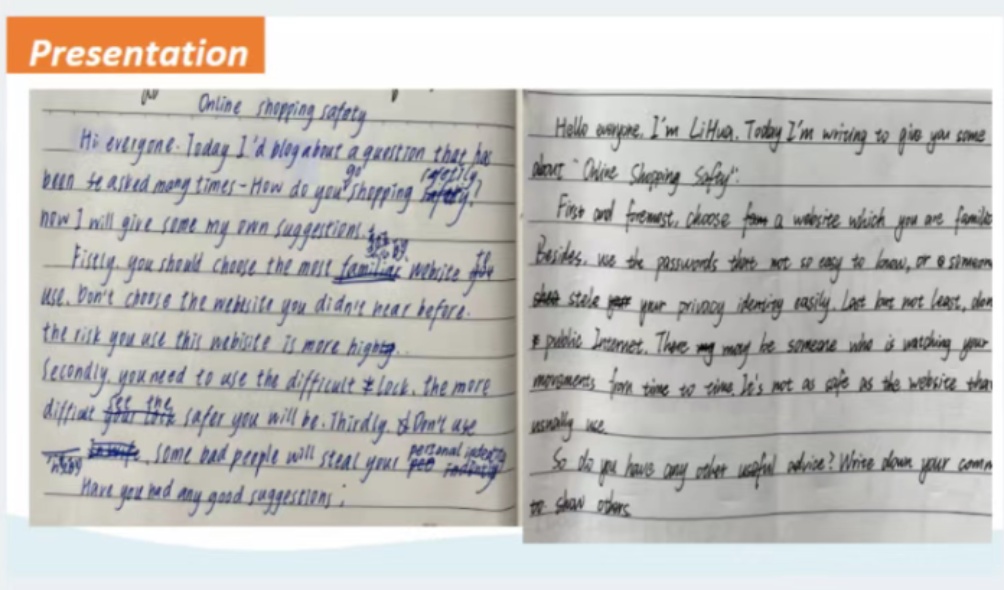 Presentation
Online shopping safety
Hi everyone. Today I'd blog about a question that has
been asked many times - How do you go shopping safetily?
now I will give some my own suggestions.
Fistly, you should choose the most familiar website
use. Don't choose the website you didn't hear before.
the risk you use this website is more high.
Secondly, you need to use the difficult lock. the more
difficut safer you will be. Thirdly, Don't use
some bad people will steal your personal
Have you had any good suggestions
Hello everyone, I'm LiHua. Today I'm writing to give you some
about "Online Shopping Safty".
First and foremost, choose a website which you are familia
Besides, use the passwords that not so easy to know, or someon
stole your privacy identity easily. Last but not least, don
public Internet. There may be someone who is watching your
movements from time to time. It's not as safe as the website tha
usually use.
So do you have any other useful advice? Write down your comm
to show others.